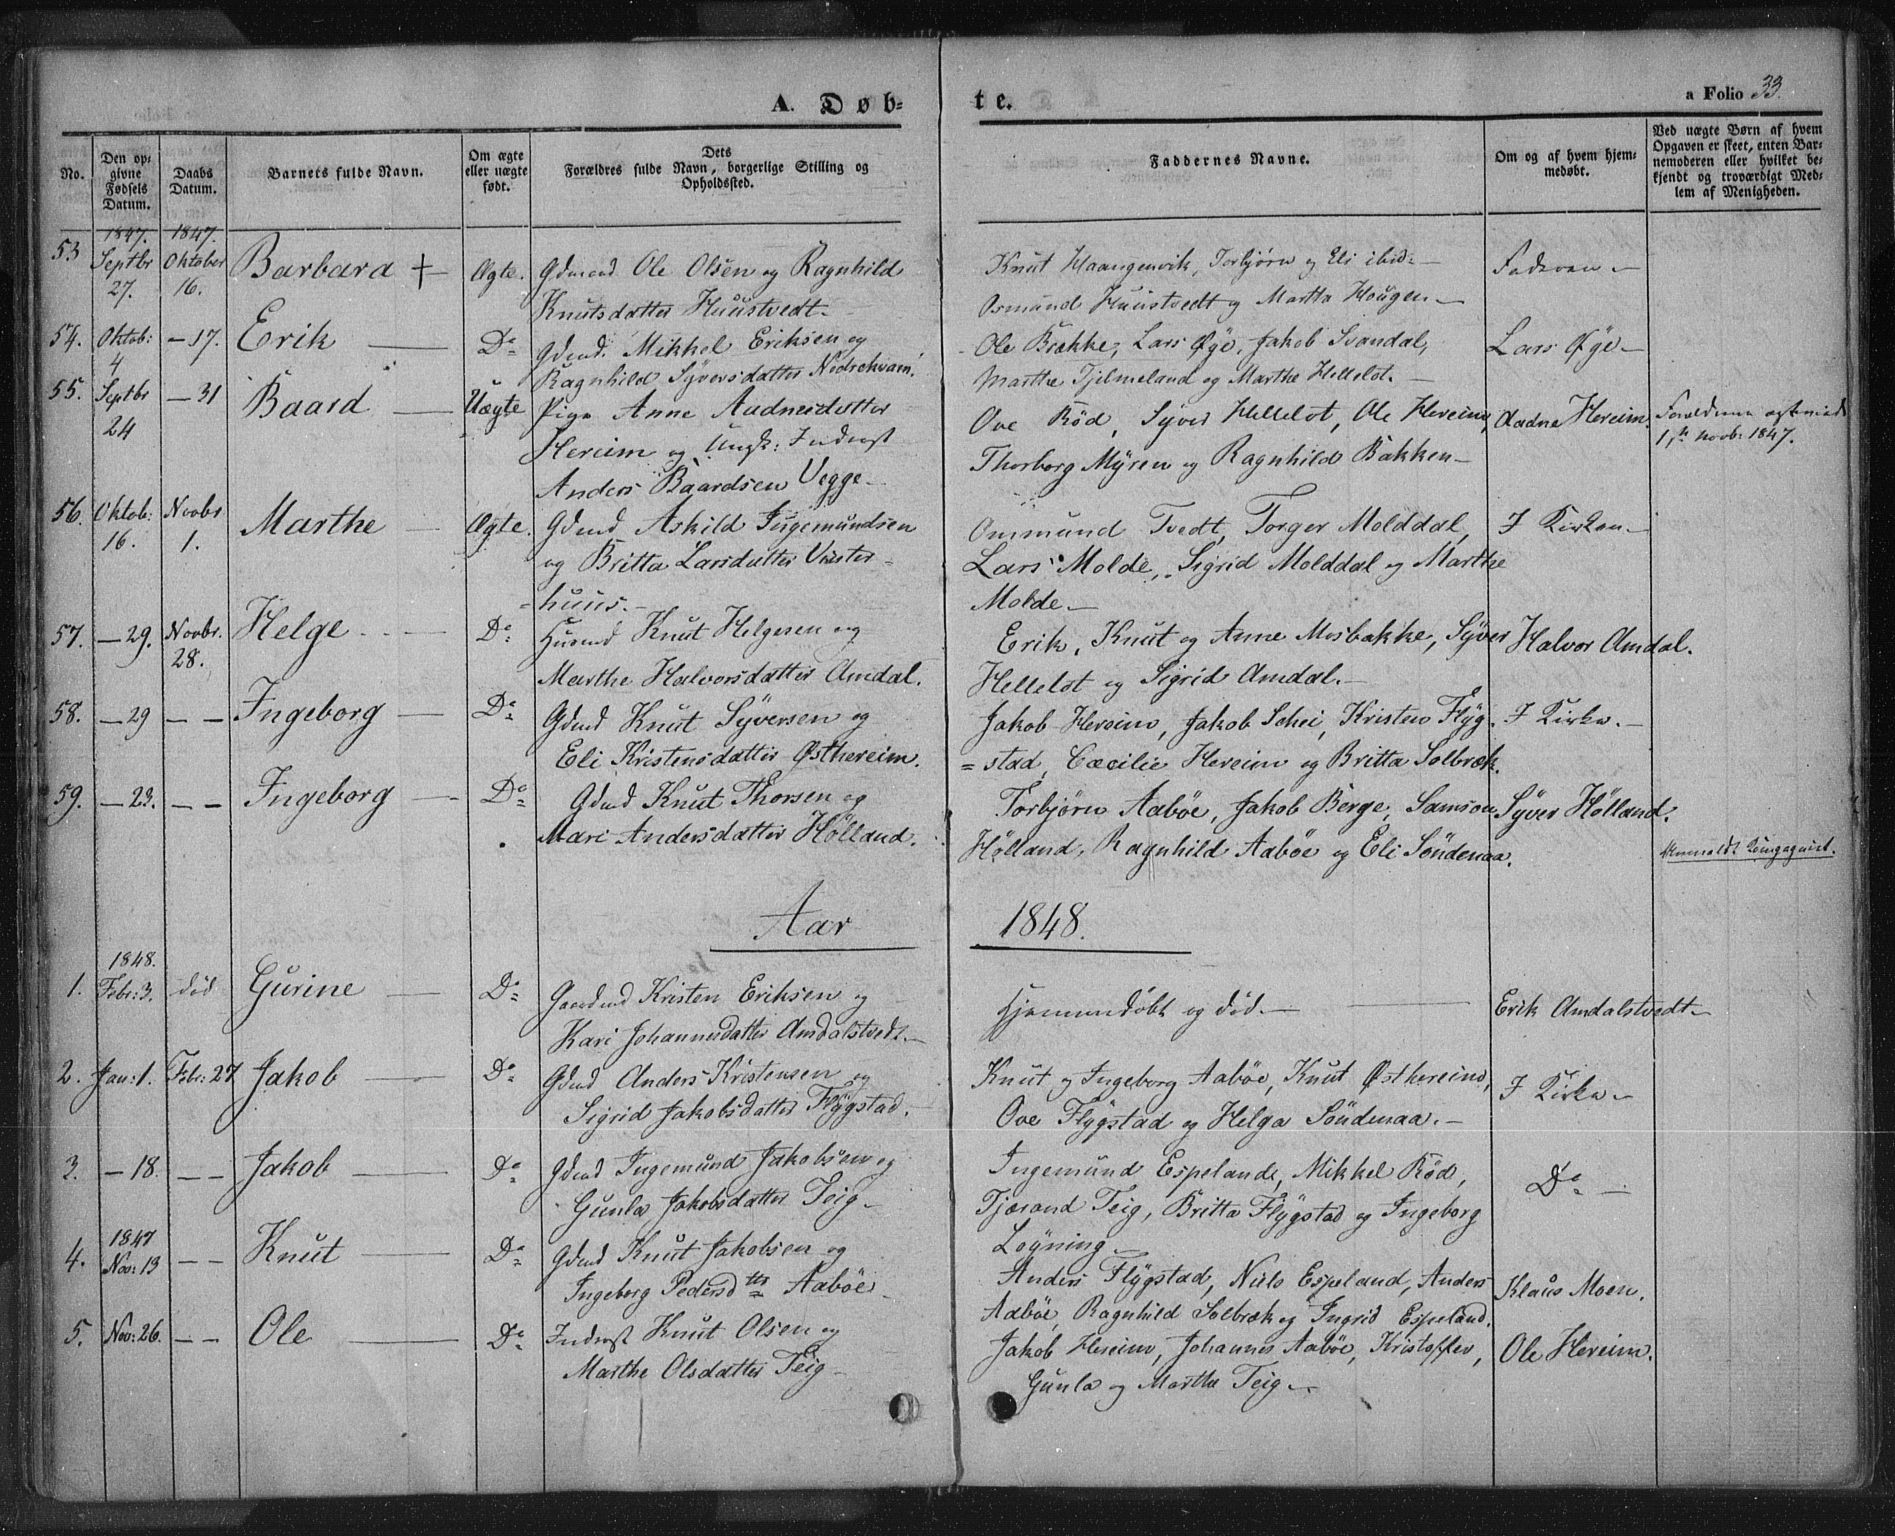 A. Døb-
te.
a Folio 33.
No.
Den op-
givne
Fødsels
Datum.
Daabs
Datum.
Barnets fulde Navn.
Om ægte
eller uægte
født.
Dets
Forældres fulde Navn, borgerlige Stilling og
Opholdssted.
Faddernes Navne.
Om og af hvem hjem-
medøbt.
Ved uægte Børn af hvem
Opgaven er skeet, enten Bar-
nemoderen eller hvilket be-
kjendt og troværdigt Med-
lem af Menigheden.
53 1847. Septbr 27. 1847. Oktober 16. Barbara + Ægte. Gdmend Ole Olsen og Ragnhild
Knutsdatter Huustvedt.
Knut Haangenvik, Torbjørn og Eli ibid:
Osmund Huustvedt og Martha Hougen
Faderen
54. Oktob: 4 17. Erik Do Gdmd. Mikkel Eriksen og
Ragnhild Syversdatter Nedrekvam.
Ole Brække, Lars Øye, Jakob Svandal,
Marthe Tjelmeland og Marthe Hellelot.
Lars Øye
55. Septbr 24 31 Baard Uægte Pige Anne Aadnesdatter
Hereim og Ungk: Inderst
Anders Baardsen Vegge
Ove Rød, Syver Hellelot, Ole Hereim,
Thorborg Myren og Ragnhild Bakken
Aadne Hereim.
1ste Novb: 1847.
56. Oktob: 16. Novbr 1. Marthe Ægte. Gdmd Askild Ingemundsen
og Britta Larsdatter Vester-
-huus.
Ommund Tvedt, Torger Molddal,
Lars Molde, Sigrid Molddal og Marthe
Molde
I Kirken
57. 29. Novbr. 28. Helge Do Husmd Knut Helgesen og
Marthe Halvorsdatter Amdal.
Erik, Knut og Anne Mosbække, Syver
Hellelot og Sigrid Amdal.
Halvor Amdal.
58. 29 Ingeborg Do Gdmd Knut Syversen og
Eli Kristensdatter Østhereim.
Jakob Hereim, Jakob Schei, Kristen Flyg-
=stad, Cæcilie Hereim og Britta Solbræk.
I Kirke.
59. 23. Ingeborg Do Gdmd Knut Thorsen og
Mari Andersdatter Hølland.
Torbjørn Aabøe, Jakob Berge, Samson
Hølland, Ragnhild Aabøe og Eli Søndenaa.
Syver Hølland.
Aar 1848.
1. 1848. Febr: 3. død Gurine Do Gaardmd Kristen Eriksen og
Kari Johannesdatter Amdalstvedt.
Hjemmedøbt og død.
Erik Amdalstvedt
2. Jan: 1. Febr: 27 Jakob Do Gdmd Anders Kristensen og
Sigrid Jakobsdatter Flygstad.
Knut og Ingeborg Aabøe, Knut Østhereim,
Ove Flygstad og Helga Søndenaa.
I Kirke
3. 18. Jakob Do Gdmd Ingemund Jakobsen og
Gunla Jakobsdatter Teig
Ingemund Espeland, Mikkel Rød,
Tjærand Teig, Britta Flygstad og Ingeborg
Løyning
Do
4. 1847 Nov: 13 Knut Do Gdmd Knut Jakobsen og
Ingeborg Pedersdtr Aabøe
Anders Flygstad, Niels Espeland, Anders
Aabøe, Ragnhild Solbræk og Ingrid Espeland.
Klaus Moen.
5. Nov: 26. Ole Do Inderst Knut Olsen og
Marthe Olsdatter Teig
Jakob Hereim, Johannes Aabøe, Kristoffer,
Gunla og Marthe Teig
Ole Hereim.